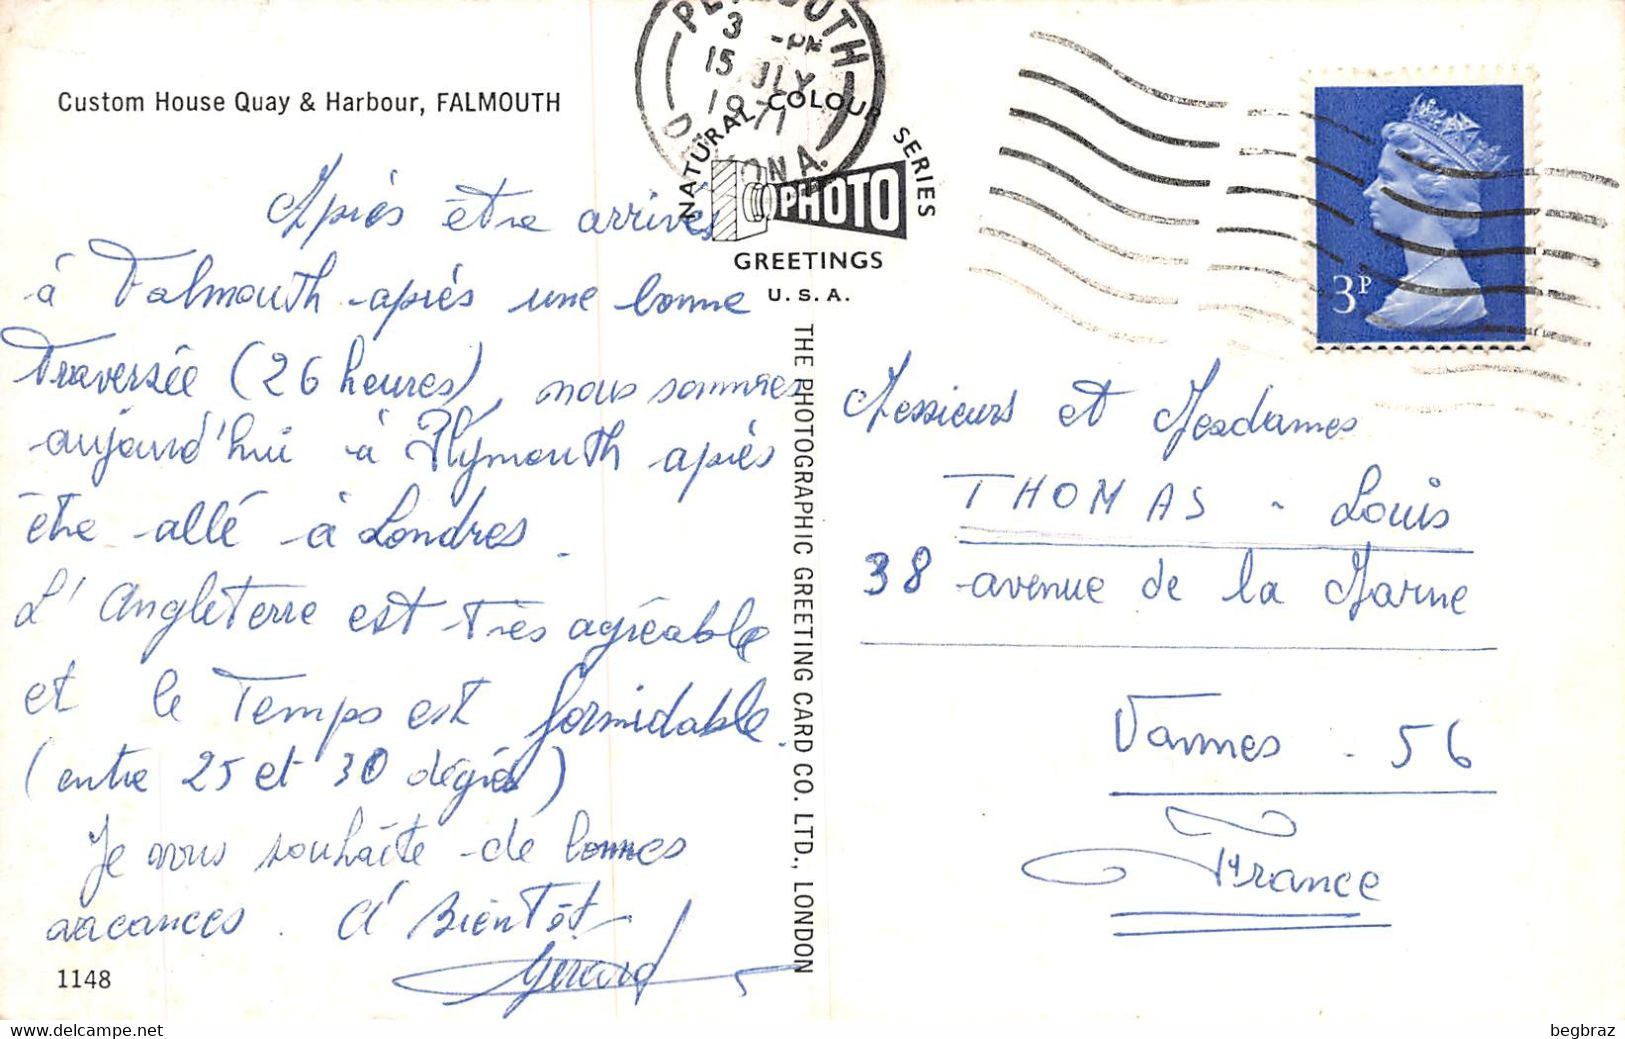 Custom House Quay & Harbour, FALMOUTH
Après être arrivés
à Falmouth après une bonne
Traversée (26 heures), nous sommes
aujourd'hui à Plymouth après
être allé à Londres.
L'Angleterre est très agréable
et le Temps est formidable.
(entre 25 et 30 degrés)
Je vous souhaite de bonnes
vacances. A Bientôt
Gérard
1148
PLYMOUTH
3 -PM
15 JLY
1971
DEVON A.
NATURAL COLOUR SERIES
PHOTO
GREETINGS
U.S.A.
THE PHOTOGRAPHIC GREETING CARD CO. LTD., LONDON
3P
Messieurs et Mesdames
THOMAS - Louis
38 avenue de la Marne
Vannes - 56
France
www.delcampe.net
begbraz